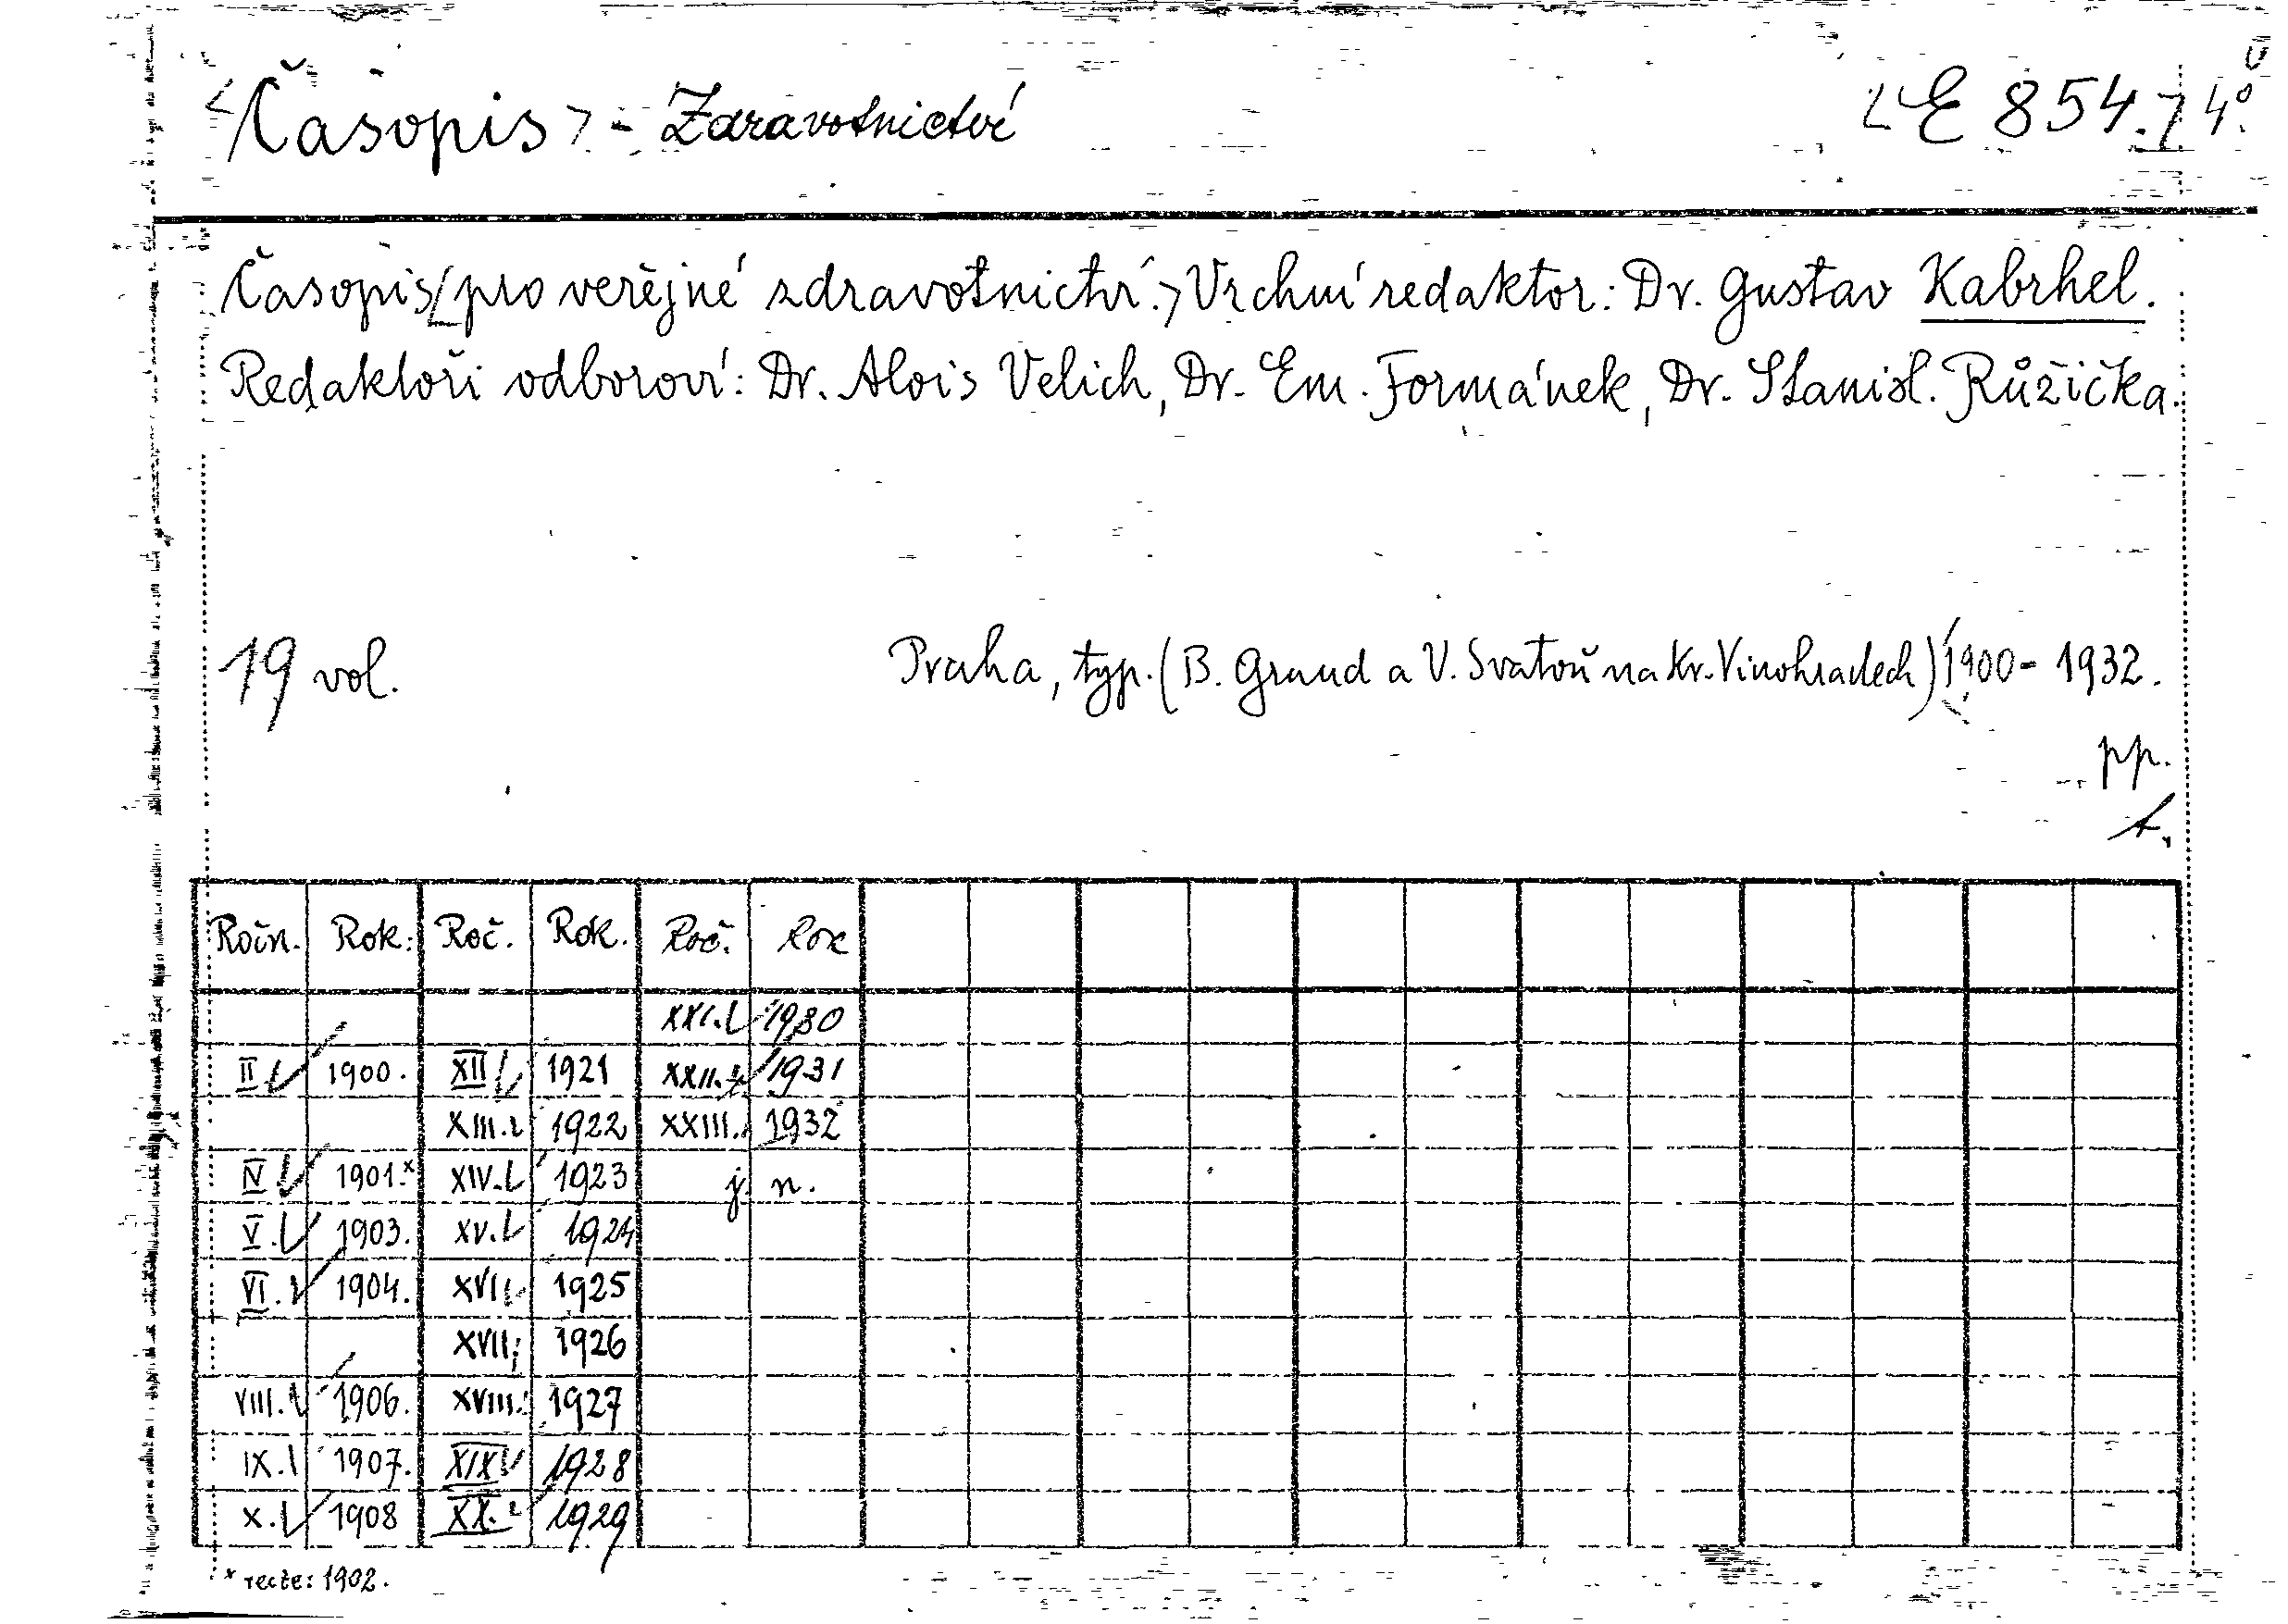 <Časopis> - Zdravotnictví <E 854.> 4°
Časopis/<pro veřejné zdravotnictví.> Vrchní redaktor: Dr. Gustav Kabrhel.
Redaktoři odboroví: Dr. Alois Velich, Dr. Em. Formánek, Dr. Stanisl. Růžička.
19 vol. Praha, typ. (B. Grund a V. Svatoň na Kr. Vinohradech) 1900 - 1932.
pp.
Ročn. Rok: Roč. Rok. Roč. Rok
XXI. 1930
II 1900. XII 1921 XXII. 1931
XIII. 1922 XXIII. 1932
IV 1901.x XIV. 1923 j. n.
V. 1903. XV. 1924
VI. 1904. XVI 1925
XVII. 1926
VIII. 1906. XVIII. 1927
IX. 1907. XIX 1928
X. 1908 XX. 1929
x recte: 1902.